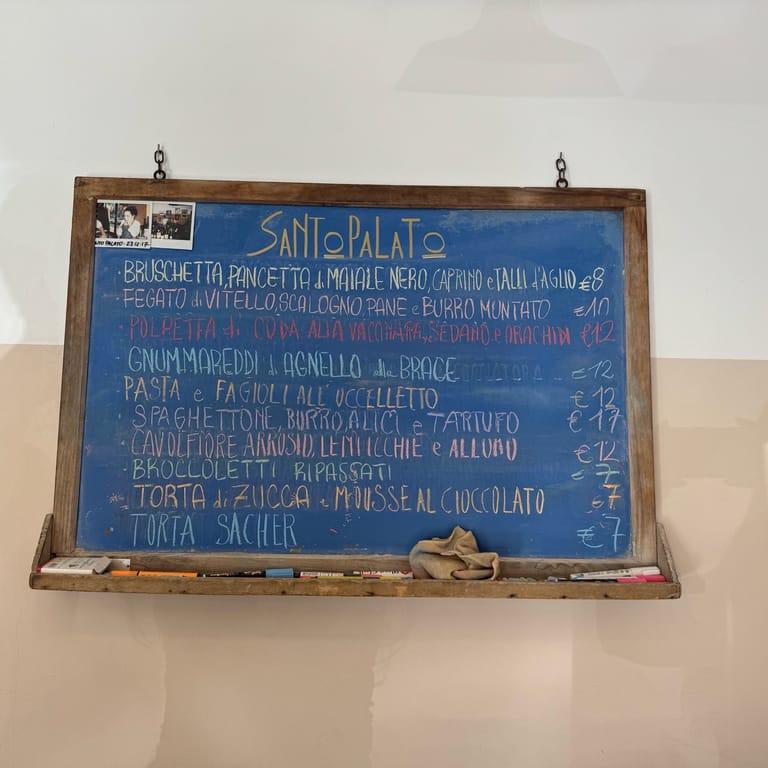 SANTOPALATO
NTO PALATO - 23-12-17
· BRUSCHETTA, PANCETTA di MAIALE NERO, CAPRINO e TALLI d'AGLIO €8
FEGATO di VITELLO, SCALOGNO, PANE e BURRO MUNTATO €10
· POLPETTA di CODA ALLA VACCINARA, SEDANO e ARACHIDI €12
GNUMMAREDDI di AGNELLO alla BRACE €12
PASTA e FAGIOLI ALL'UCCELLETTO €12
SPAGHETTONE, BURRO, ALICI e TARTUFO €17
CAVOLFIORE ARROSTO, LENTICCHIE e ALLORO €12
BROCCOLETTI RIPASSATI €7
TORTA di ZUCCA e MOUSSE AL CIOCCOLATO €7
TORTA SACHER €7